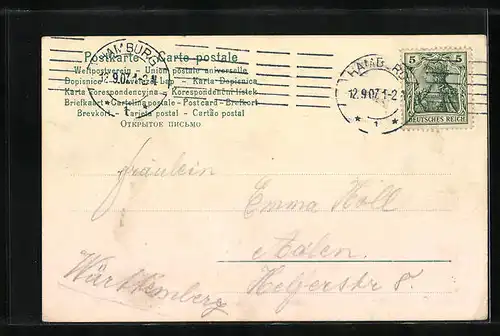 Postkarte - Carte postale
Weltpostverein - Union postale universelle
Dopisnice - Levelező-Lap - Karta Dopisnica
Karta Korespondencyjna - Korespondenční lístek
Briefkaart - Cartolina postale - Postcard - Brefkort
Brevkort - Tarjeta postal - Cartão postal
ОТКРЫТОЕ ПИСЬМО
HAMBURG
12.9.07. 1-2 N
1
HAMBURG
12.9.07. 1-2
1
5 5
DEUTSCHES REICH
Fräulein
Emma Holl
Aalen.
Helferstr 8.
Württemberg